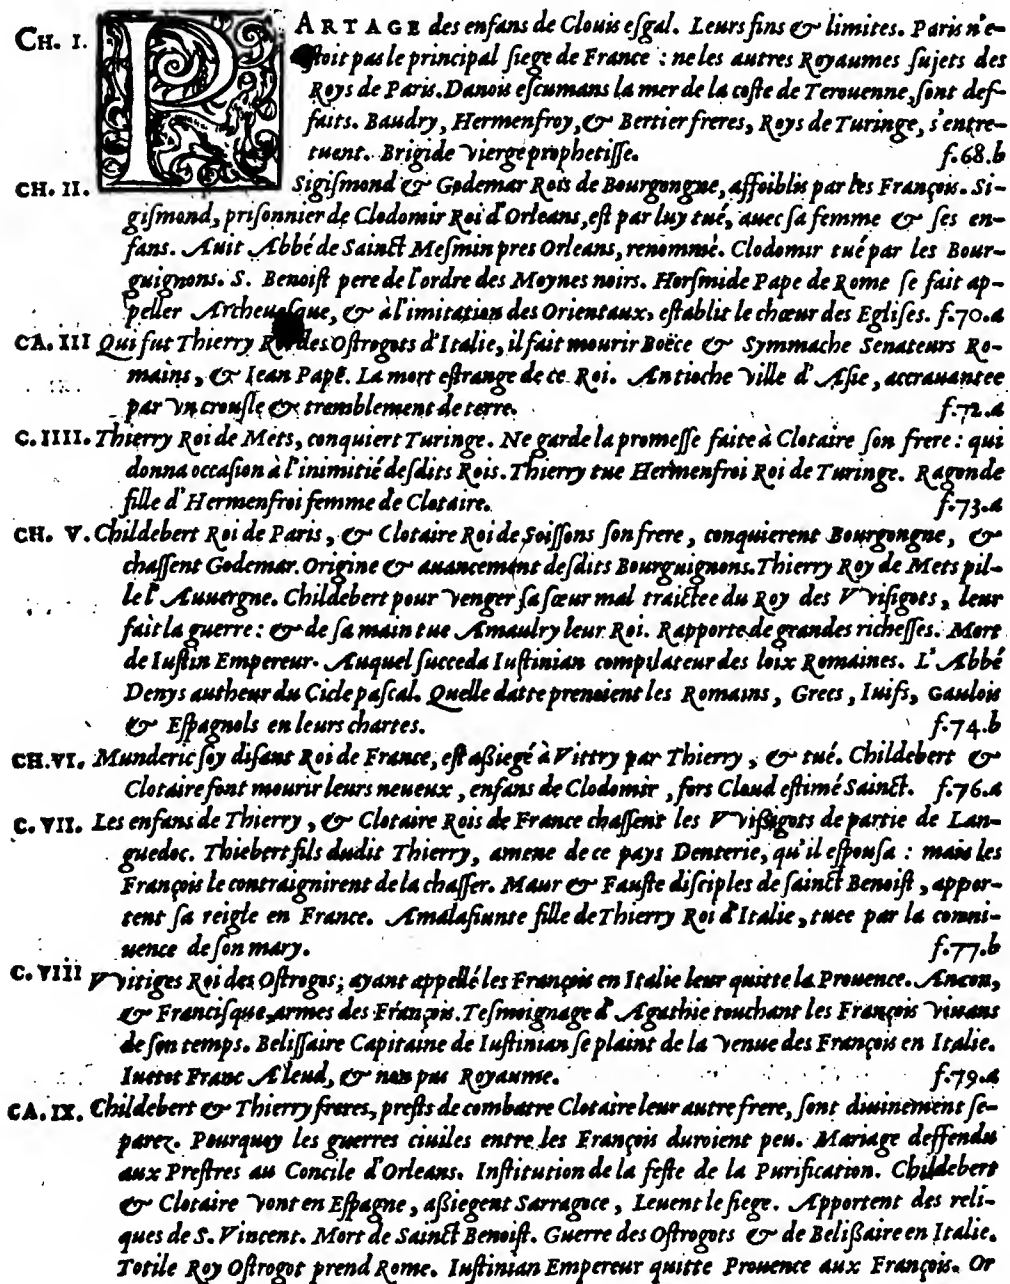 CH. I. PARTAGE des enfans de Clouis eſgal. Leurs fins & limites. Paris n'e-
ſtoit pas le principal ſiege de France : ne les autres Royaumes ſujets des
Roys de Paris. Danois eſcumans la mer de la coſte de Terouenne, ſont def-
faits. Baudry, Hermenfroy, & Bertier freres, Roys de Turinge, s'entre-
tuent. Brigide vierge prophetiſſe. f.68.b
CH. II. Sigiſmond & Godemar Rois de Bourgongne, affoiblis par les François. Si-
giſmond, priſonnier de Clodomir Roi d'Orleans, eſt par luy tué, auec ſa femme & ſes en-
fans. Auit Abbé de Sainct Meſmin pres Orleans, renommé. Clodomir tué par les Bour-
guignons. S. Benoiſt pere de l'ordre des Moynes noirs. Horſmide Pape de Rome ſe fait ap-
peller Archeueſque, & à l'imitation des Orientaux, eſtablit le chœur des Egliſes. f.70.a
CA. III Qui fut Thierry Roi des Oſtrogots d'Italie, il fait mourir Boëce & Symmache Senateurs Ro-
mains, & Iean Pape. La mort eſtrange de ce Roi. Antioche ville d'Aſie, accrauantee
par vn crouſle & tremblement de terre. f.72.a
C. IIII. Thierry Roi de Mets, conquiert Turinge. Ne garde la promeſſe faite à Clotaire ſon frere : qui
donna occaſion à l'inimitié deſdits Rois. Thierry tue Hermenfroi Roi de Turinge. Ragonde
fille d'Hermenfroi femme de Clotaire. f.73.a
CH. V. Childebert Roi de Paris, & Clotaire Roi de Soiſſons ſon frere, conquierent Bourgongne, &
chaſſent Godemar. Origine & auancement deſdits Bourguignons. Thierry Roy de Mets pil-
le l'Auuergne. Childebert pour venger ſa ſœur mal traictee du Roy des Vviſigots, leur
fait la guerre : & de ſa main tue Amaulry leur Roi. Rapporte de grandes richeſſes. Mort
de Iuſtin Empereur. Auquel ſucceda Iuſtinian compilateur des loix Romaines. L'Abbé
Denys autheur du Cicle paſcal. Quelle datte prenoient les Romains, Grecs, Iuifs, Gaulois
& Eſpagnols en leurs chartes. f.74.b
CH. VI. Munderic ſoy diſant Roi de France, eſt aßiegé à Vittry par Thierry, & tué. Childebert &
Clotaire font mourir leurs neueux, enfans de Clodomir, fors Cloud eſtimé Sainct. f.76.a
C. VII. Les enfans de Thierry, & Clotaire Rois de France chaſſent les Vvißigots de partie de Lan-
guedoc. Thiebert fils dudit Thierry, amene de ce pays Denterie, qu'il eſpouſa : mais les
François le contraignirent de la chaſſer. Maur & Fauſte diſciples de ſainct Benoiſt, appor-
tent ſa reigle en France. Amalaſiunte fille de Thierry Roi d'Italie, tuee par la conni-
uence de ſon mary. f.77.b
C. VIII Vvitiges Roi des Oſtrogos, ayant appellé les François en Italie leur quitte la Prouence. Ancon,
& Franciſque, armes des François. Teſmoignage d'Agathie touchant les François viuans
de ſon temps. Beliſſaire Capitaine de Iuſtinian ſe plaint de la venue des François en Italie.
Iuetot Franc Aleud, & non pas Royaume. f.79.a
CA. IX. Childebert & Thierry freres, preſts de combatre Clotaire leur autre frere, ſont diuinement ſe-
parez. Pourquoy les guerres ciuiles entre les François duroient peu. Mariage deffendu
aux Preſtres au Concile d'Orleans. Inſtitution de la feſte de la Purification. Childebert
& Clotaire vont en Eſpagne, aßiegent Sarragoce, Leuent le ſiege. Apportent des reli-
ques de S. Vincent. Mort de Sainct Benoiſt. Guerre des Oſtrogots & de Belißaire en Italie.
Totile Roy Oſtrogot prend Rome. Iuſtinian Empereur quitte Prouence aux François. Or